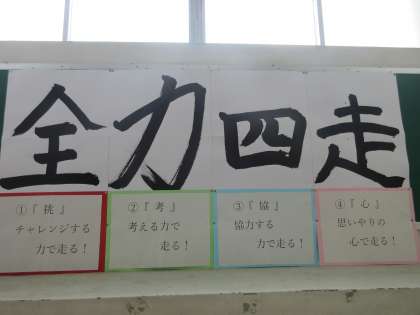 全力四走
①『挑』
チャレンジする
力で走る！
②『考』
考える力で
走る！
③『協』
協力する
力で走る！
④『心』
思いやりの
心で走る！